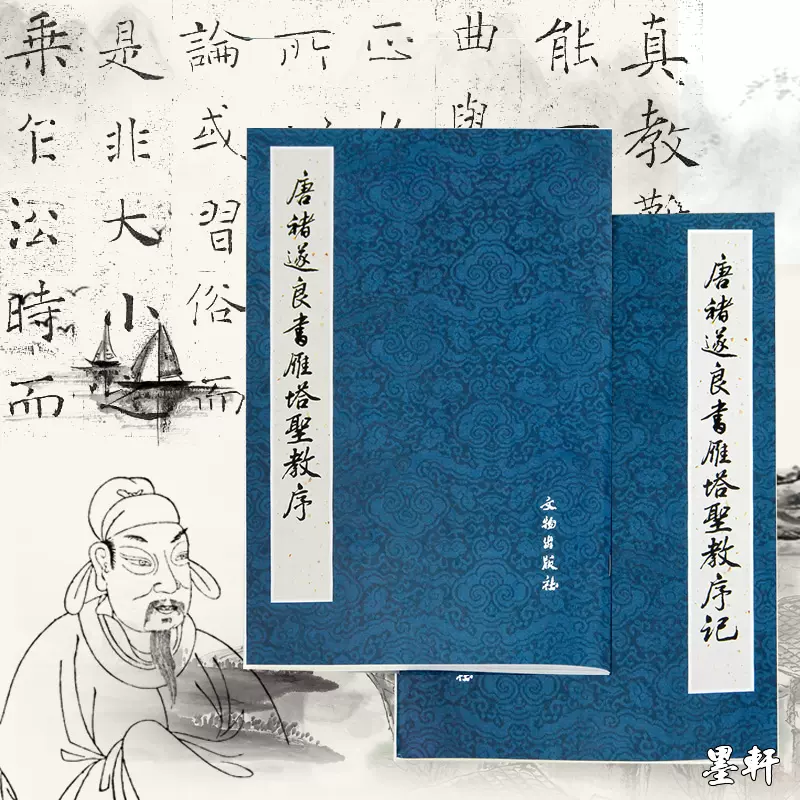 真教難
能一
曲學
正
所
論或習俗而
是非大小之
乘乍沿時而
唐褚遂良書雁塔聖教序
文物出版社
唐褚遂良書雁塔聖教序记
墨軒